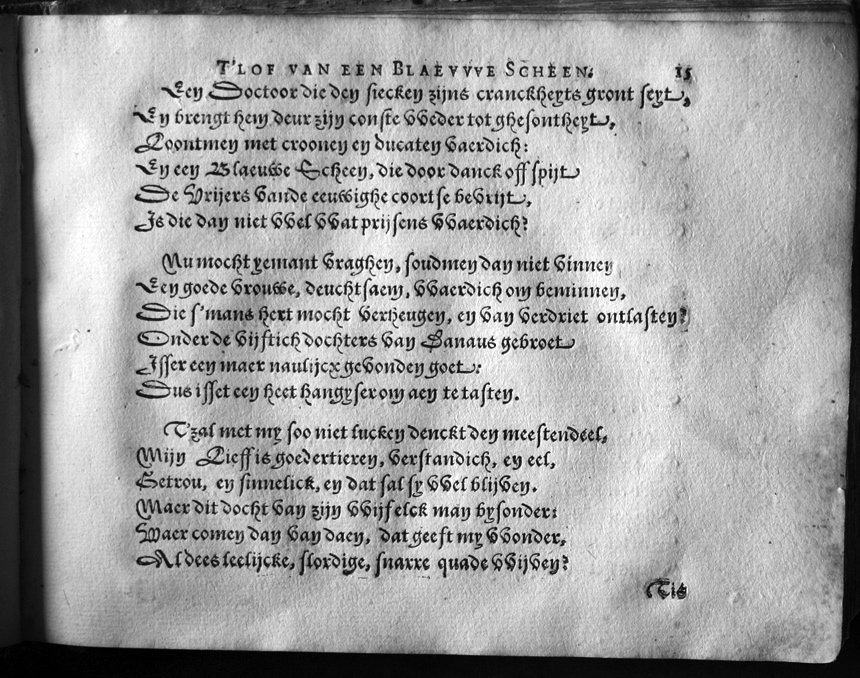 T'LOF VAN EEN BLAEVVVE SCHEEN. 15
Een Doctoor die den siecken zijns cranckheyts gront seyt,
En brengt hem deur zijn conste VVeder tot ghesontheyt,
Loontmen met croonen en ducaten Vaerdich:
En een Blaeuwe Scheen, die door danck off spijt
De Vrijers Vande eeuwighe coortse beVrijt,
Is die dan niet VVel VVat prijsens VVaerdich?
Nu mocht yemant Vraghen, soudmen dan niet Vinnen
Een goede Vrouwe, deuchtsaem, VVaerdich om beminnen,
Die s'mans hert mocht Verheugen, en Van Verdriet ontlasten?
Onder de Vijftich dochters Van Danaus gebroet
Isser een maer naulijcx geVonden goet:
Dus isset een heet hangyser om aen te tasten.
Tzal met my soo niet lucken denckt den meestendeel,
Mijn Lieff is goedertieren, Verstandich, en eel,
Getrou, en sinnelick, en dat sal sy VVel blijVen.
Maer dit docht Van zijn VVijf elck man bysonder:
Waer comen dan Van daen, dat geeft my VVonder,
Al dees leelijcke, slordige, snarre quade VVijVen?
Tis